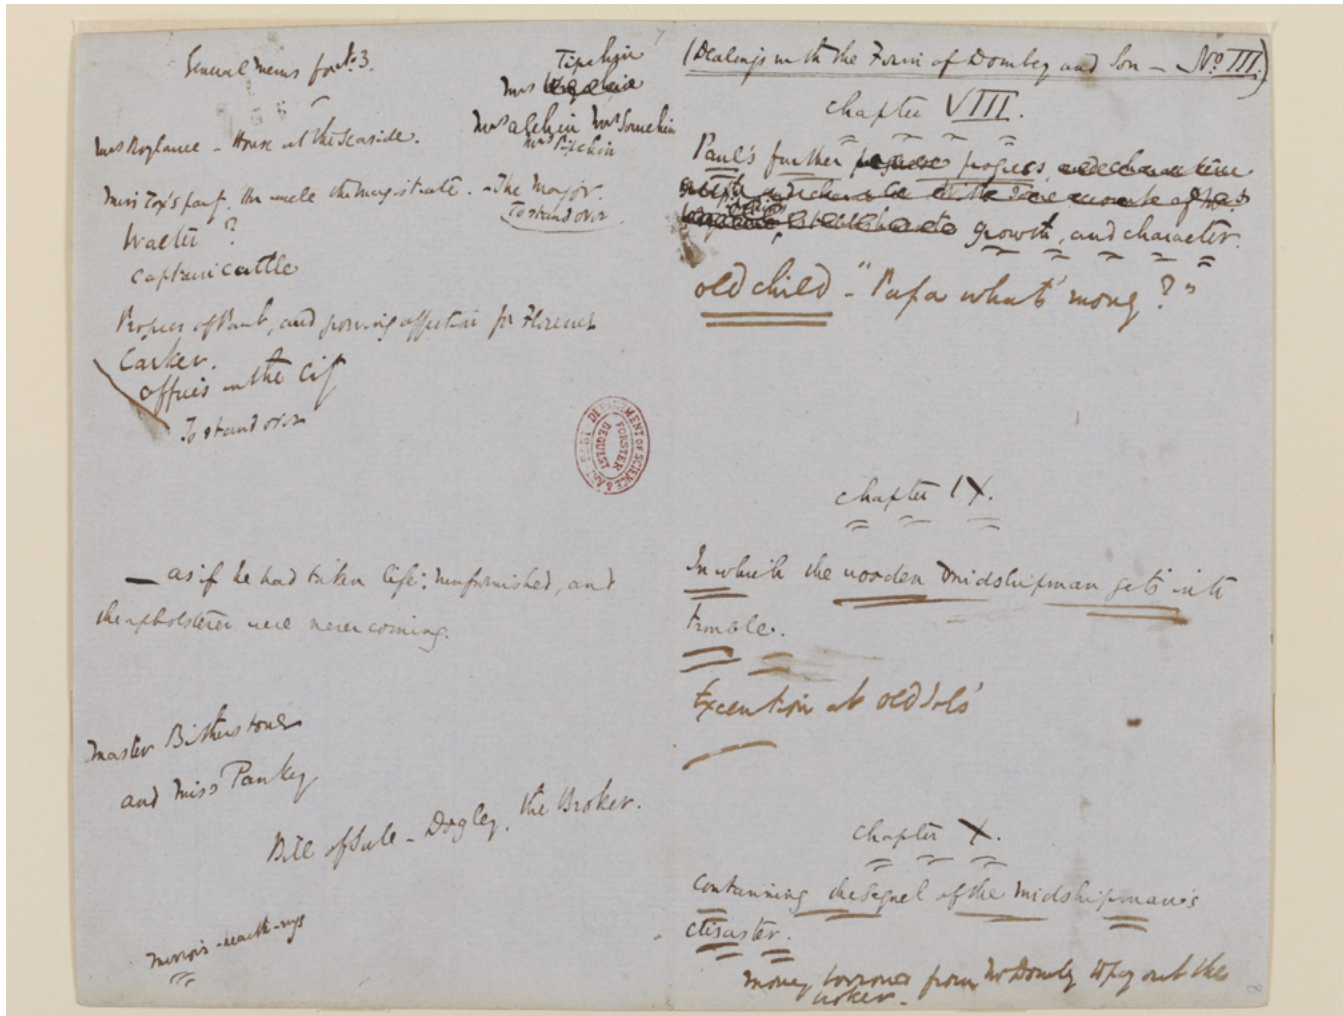 General Mems for No. 3.
Tipchin
Mrs
Mrs Alchin Mrs Somchin
Mrs Pipchin
Mrs Roylance - House at the Seaside.
Miss Tox's party. Her uncle the magistrate. - The Major.
To stand over
Walter?
Captain Cuttle
Progress of Paul, and growing affection for Florence
Carker.
Offices in the City
To stand over
DEPARTMENT OF SCIENCE & ART
FORSTER
BEQUEST
— as if he had taken life: unfurnished, and
the upholsterer were never coming.
Master Bitherstone
and Miss Panky
Bill of Sale - Dogley, the Broker.
Mirrors - hearth-rugs
7
(Dealings with the Firm of Dombey and Son - No. III.)
Chapter VIII.
Paul's further progress,
growth, and character.
old child - "Papa what's money?"
Chapter IX.
In which the wooden midshipman gets into
trouble.
Execution at old Sol's
Chapter X.
Containing the Sequel of the Midshipman's
disaster.
Money borrowed from Mr Dombey to pay out the
broker.
8